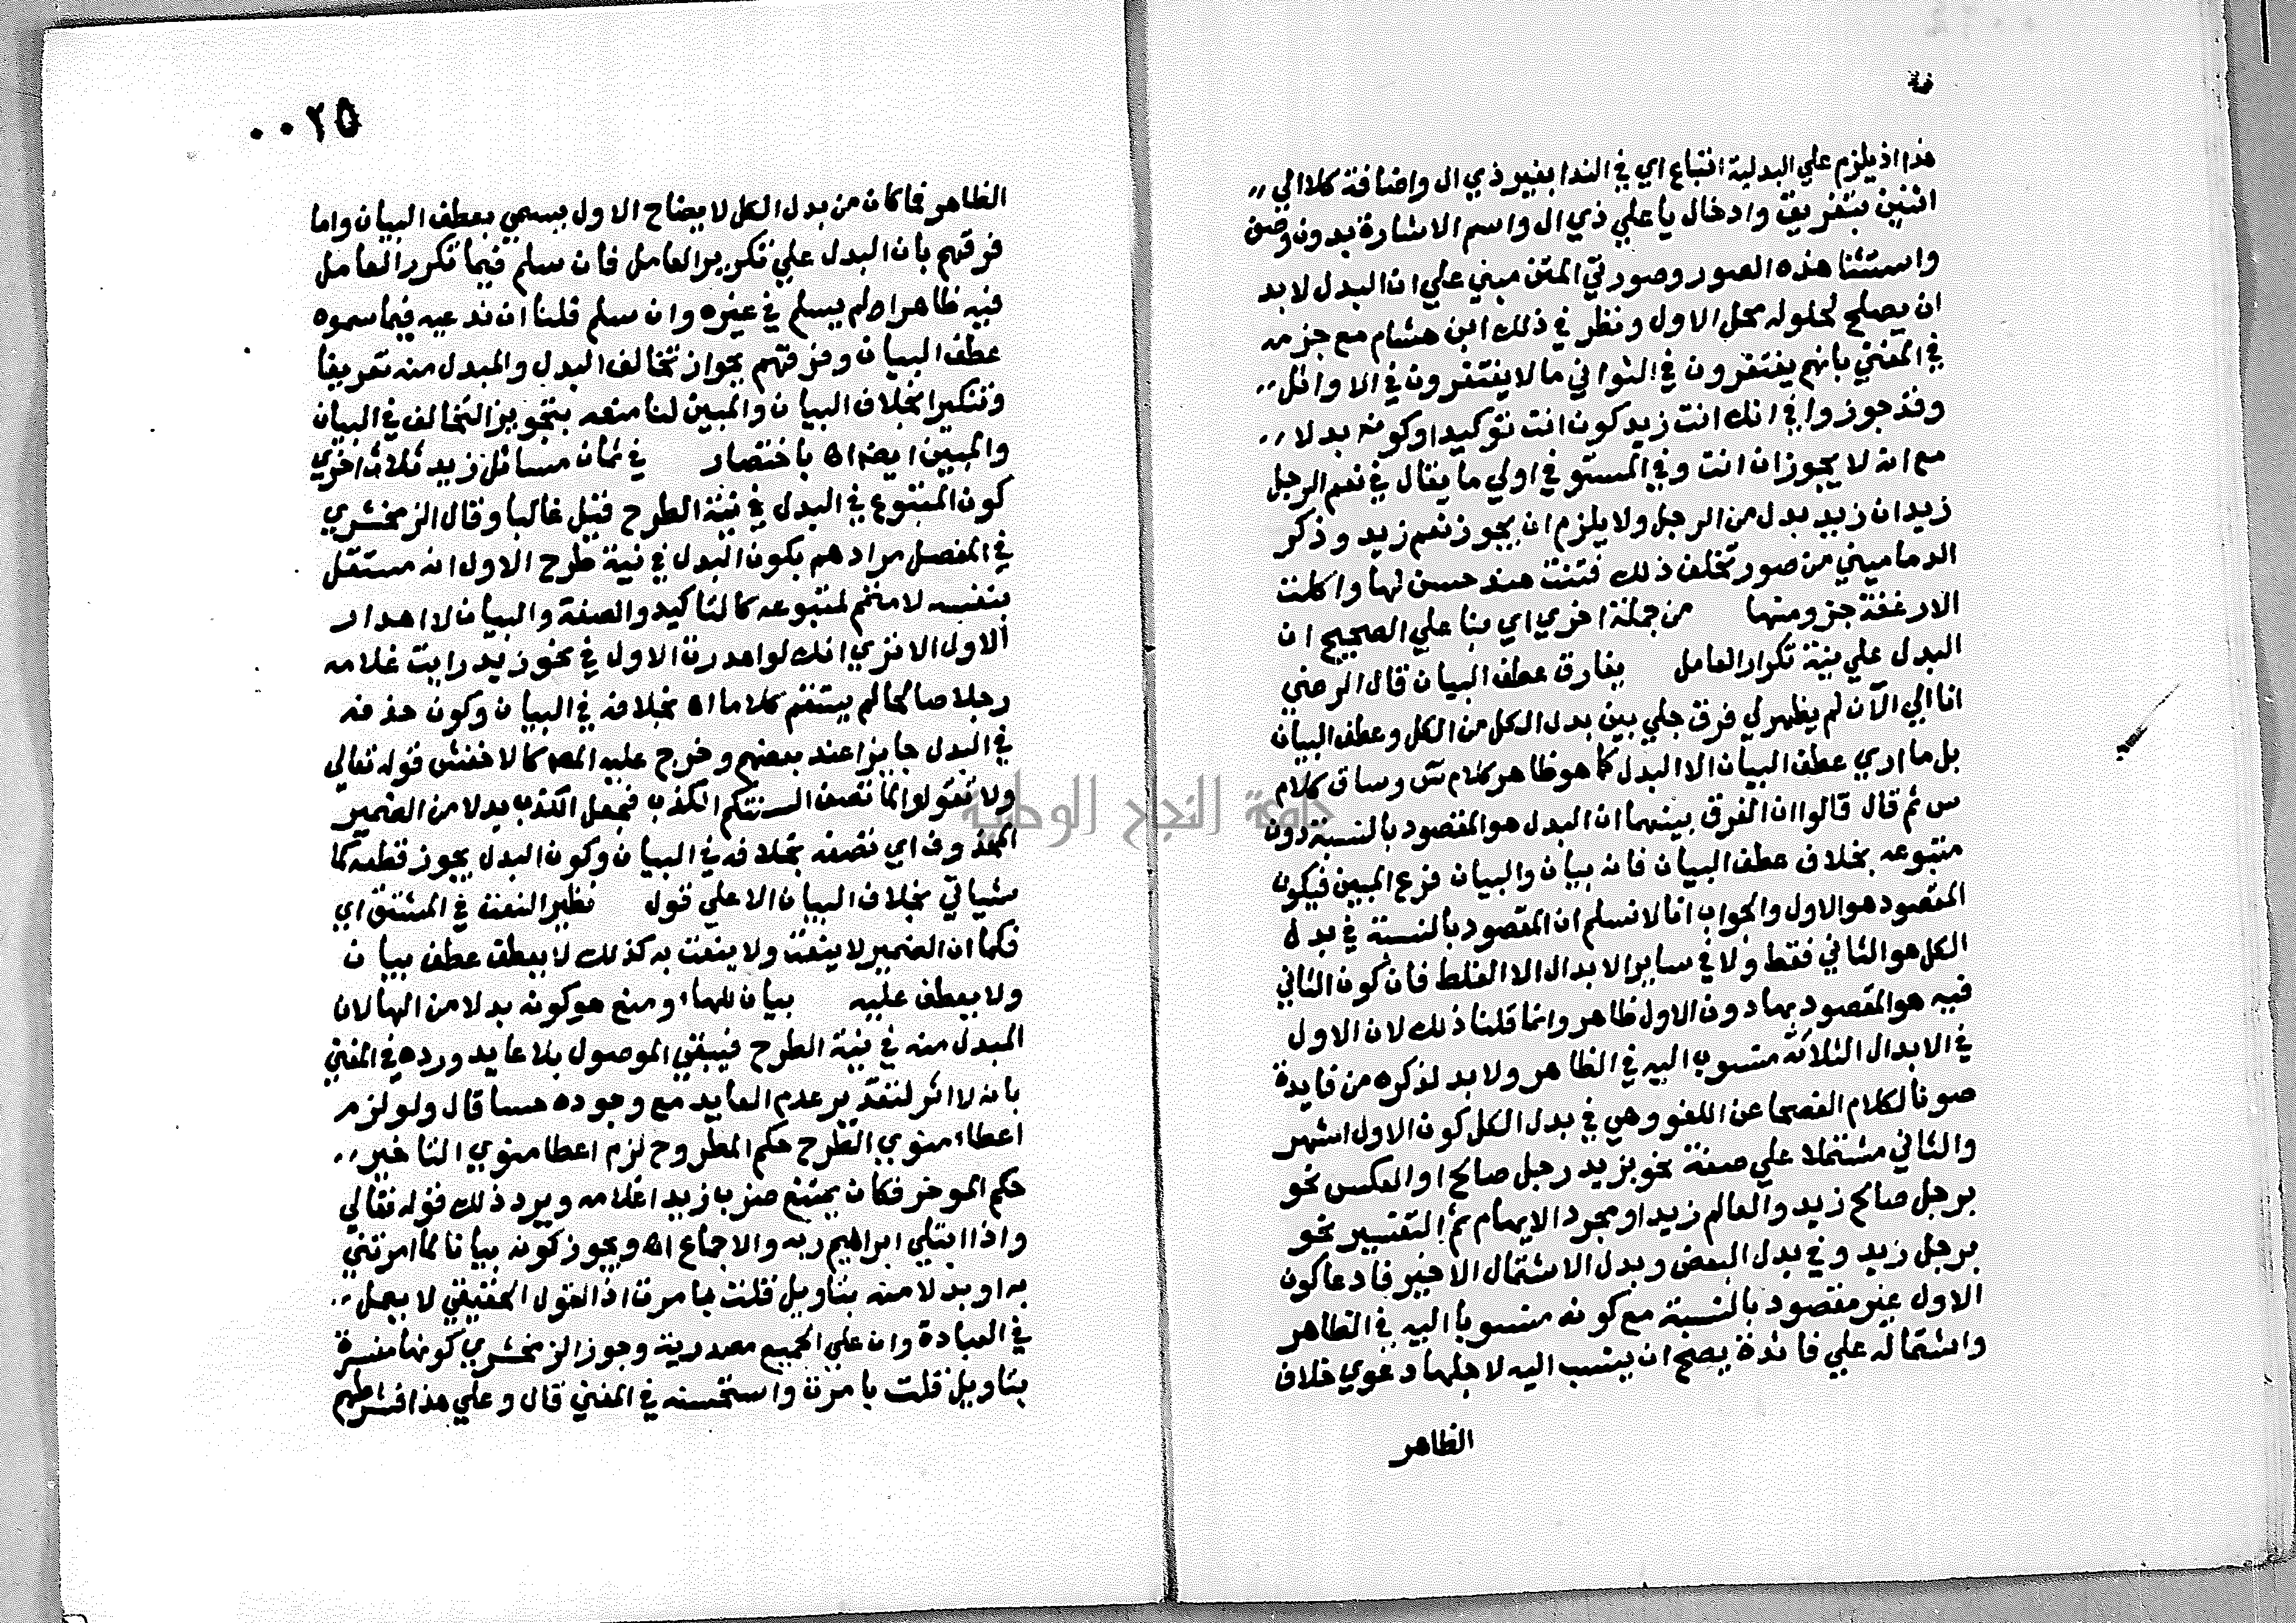 هذا اذ يلزم علي البدلية اتباع اي في الندا بغير ذي ال واضافة كلا الي
اثنين بتفريق وادخال يا علي ذي ال واسم الاشارة بدون وصف
واستثنا هذه الصور وصورتي المتن مبني علي ان البدل لا بد
ان يصلح لحلوله محل الاول ونظر في ذلك ابن هشام مع جزمه
في المغني بانهم يغتفرون في الثواني ما لا يغتفرون في الاوائل
وقد جوزوا في انك انت زيد كون انت توكيدا وكونه بدلا
مع انه لا يجوز ان انت وفي المستوفي اولي ما يقال في نعم الرجل
زيد ان زيد بدل من الرجل ولا يلزم ان يجوز نعم زيد وذكر
الدماميني من صور تخلف ذلك فتنت هند حسن لها واكلت
الارغفة جزو منها من جملة اخري اي بنا علي الصحيح ان
البدل علي نية تكرار العامل يفارق عطف البيان قال الرضي
انا الي الآن لم يظهر لي فرق جلي بين بدل الكل من الكل وعطف البيان
بل ما اري عطف البيان الا البدل كما هو ظاهر كلام س وساق كلام
س ثم قال قالوا ان الفرق بينهما ان البدل هو المقصود بالنسبة دون
متبوعه بخلاف عطف البيان فانه بيان والبيان فرع المبين فيكون
المقصود هو الاول والجواب انا لا نسلم ان المقصود بالنسبة في بدل
الكل هو الثاني فقط ولا في ساير الابدال الا الغلط فان كون الثاني
فيه هو المقصود بها دون الاول ظاهر وانما قلنا ذلك لان الاول
في الابدال الثلاثة منسوب اليه في الظاهر ولا بد لذكره من فايدة
صونا لكلام الفصحا عن اللغو وهي في بدل الكل كون الاول اشهر
والثاني مشتملا علي صفة نحو بزيد رجل صالح او العكس نحو
برجل صالح زيد والعالم زيد او مجرد الابهام ثم التفسير نحو
برجل زيد وفي بدل البعض وبدل الاشتمال الاخير فادعا كون
الاول غير مقصود بالنسبة مع كونه منسوبا اليه في الظاهر
واشتماله علي فائدة يصح ان ينسب اليه لاجلها دعوي خلاف
الظاهر
٠٠٢٥
الظاهر فما كان من بدل الكل لايضاح الاول يسمي بعطف البيان واما
فرقهم بان البدل علي تكرير العامل فان سلم فيما تكرر العامل
فيه ظاهرا لم يسلم في غيره وان سلم قلنا ان ندعيه فيما سموه
عطف البيان وفرقهم بجواز تخالف البدل والمبدل منه تعريفا
وتنكيرا بخلاف البيان والمبين لنا منعه بتجويز التخالف في البيان
والمبين ايضا اه باختصار في ثمان مسائل زيد ثلاث اخري
كون المتبوع في البدل في نية الطرح قبل غالبا وقال الزمخشري
في المفصل مرادهم بكون البدل في نية طرح الاول انه مستقل
بنفسه لا متمم لمتبوعه كالتاكيد والصفة والبيان لا اهدار
الاول الا تري انك لو اهدرت الاول في نحو زيد رايت غلامه
رجلا صالحا لم يستقم كلاما اه بخلافه في البيان وكون حذفه
في البدل جايزا عند بعضهم وخرج عليه المص كالاخفش قوله تعالي
ولا تقولوا لما تصف السنتكم الكذب فجعل الكذب بدلا من الضمير
المحذوف اي تصفه بخلافه في البيان وكون البدل يجوز قطعه كما
سياتي بخلاف البيان الا علي قول نظير النعت في المشتق اي
فكما ان الضمير لا ينعت ولا ينعت به كذلك لا يعطف عطف بيان
ولا يعطف عليه بيان للهاء ومنع هو كونه بدلا من الها لان
المبدل منه في نية الطرح فيبقي الموصول بلا عايد ورده في المغني
بانه لا اثر لتقدير عدم العايد مع وجوده حسا قال ولو لزم
اعطاء منوي الطرح حكم المطروح لزم اعطا منوي التاخير
حكم الموخر فكان يمتنع ضرب زيدا غلامه ويرد ذلك قوله تعالي
واذ ابتلي ابراهيم ربه والاجماع اه ويجوز كونه بيانا لما امرتني
به او بدلا منه بتاويل قلت بامرت اذ القول الحقيقي لا يعمل
في العبادة وان علي الجميع مصدرية وجوز الزمخشري كونها مفسرة
بتاويل قلت بامرت واستحسنه في المغني قال وعلي هذا